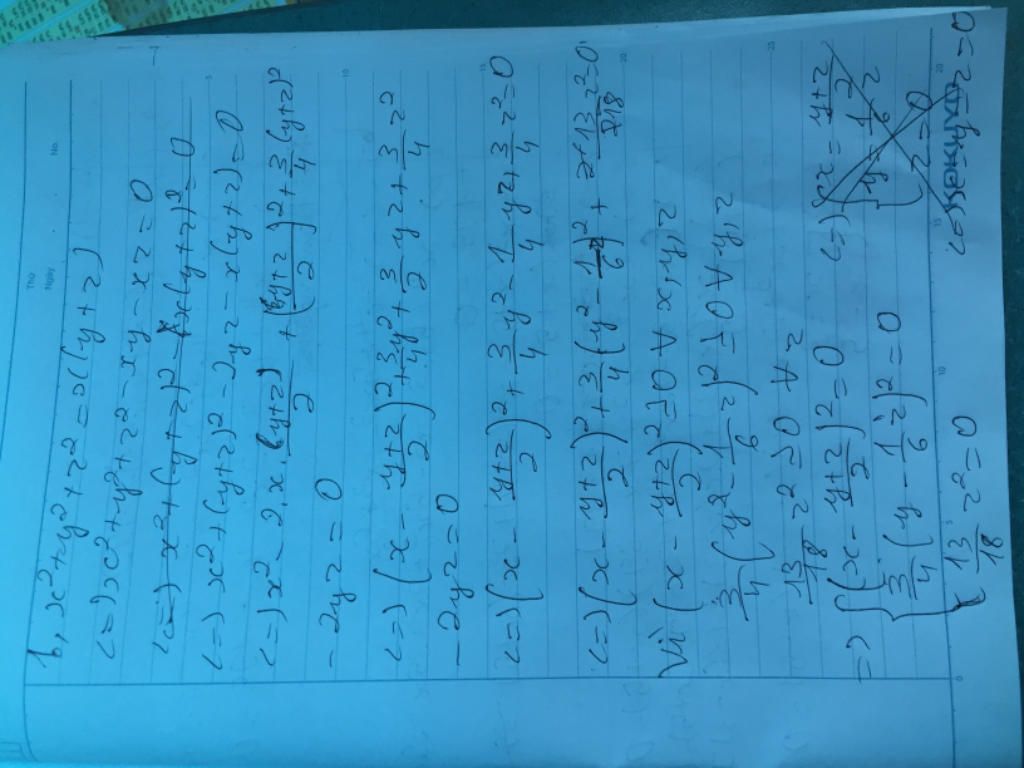 Thứ
Ngày No.
b, x²+y²+z²=x(y+z)
<=> x²+y²+z²-xy-xz=0
<=> x²+(y+z)²-x(y+z)²=0
<=> x²+(y+z)²-2yz-x(y+z)=0
<=> x²-2.x.(y+z)/2+((y+z)/2)²+3/4(y+z)²
-2yz=0
<=> (x-(y+z)/2)²+3/4y²+3/2yz+3/4z²
-2yz=0
<=> (x-(y+z)/2)²+3/4y²-1/4... yz+3/4z²=0
<=> (x-(y+z)/2)²+3/4(y²-1/6z)²+13/18z²=0
Vì (x-(y+z)/2)²≥0 ∀ x,y,z
3/4(y²-1/6z)²≥0 ∀ y,z
13/18z²≥0 ∀ z
=> {(x-(y+z)/2)²=0 <=> {x=(y+z)/2
3/4(y-1/6z)²=0 y=1/6z
13/18z²=0 z=0
<=> x=y=z=0